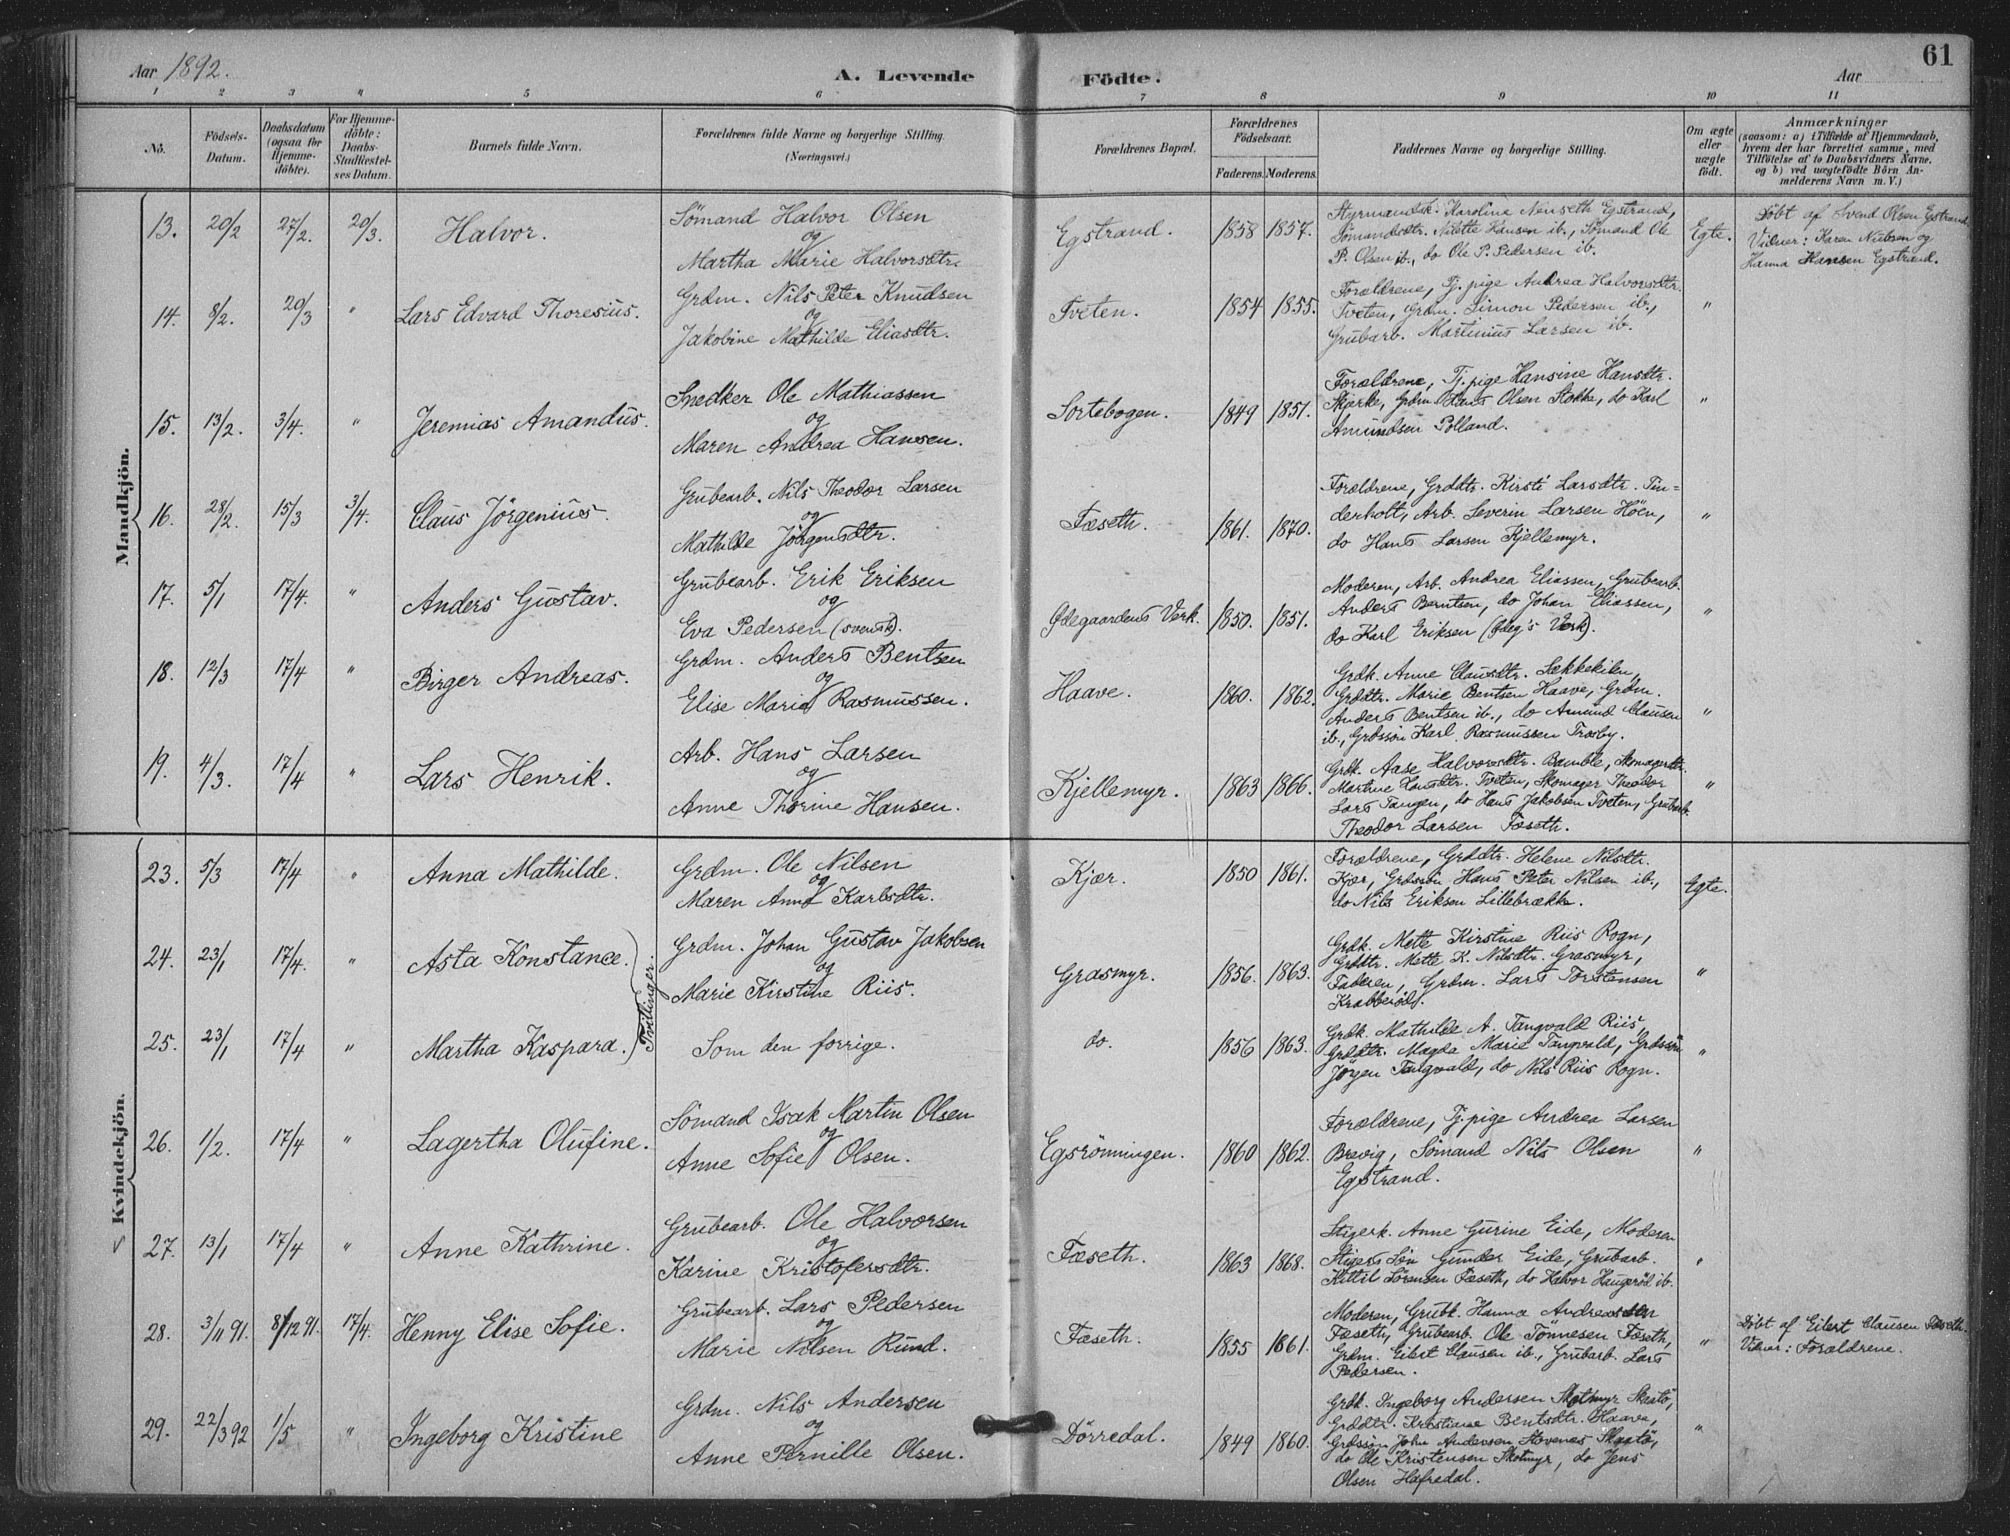 Aar 1892.
A. Levende Födte.
Aar
61
1 2 3 4 5 6 7 8 9 10 11
No.
Födsels-Datum.
Daabsdatum (ogsaa for Hjemmedöbte).
For Hjemmedöbte: Daabs-Stadfæstelses Datum.
Barnets fulde Navn.
Forældrenes fulde Navne og borgerlige Stilling. (Næringsvei.)
Forældrenes Bopæl.
Forældrenes Födselsaar.
Faderens. Moderens.
Faddernes Navne og borgerlige Stilling.
Om ægte eller uægte födt.
Anmærkninger
(saasom: a) i Tilfælde af Hjemmedaab,
hvem der har forrettet samme, med
Tilföielse af to Daabsvidners Navne.
og b) ved uægtefödte Börn An-
melderens Navn m. V.)
Mandkjön.
13. 20/2 27/2. 20/3. Halvor.
Sömand Halvor Olsen
og
Martha Marie Halvorsdtr.
Egstrand. 1858 1857.
Styrmandsk. Karolina Egstrand,
Sömandsdtr. Nilette Hansen ib., Sömand Ole
P. Olsen ib., do Ole P. Pedersen ib.
Egte.
Döbt af Svend Olsen Egstrand
Vidner: Karen Nielsen og
Hanna Hansen Egstrand.
14. 8/2. 20/3 " Lars Edvard Thoresius.
Grdm. Nils Peter Knudsen
og
Jakobine Mathilde Eliasdtr.
Tveten. 1854 1855.
Forældrene, Tj.pige Andrea Halvorsdtr.
Tveten, Grdm. Simon Pedersen ib.,
Grubarb. Martinius Larsen ib.
"
15. 13/2. 3/4. " Jeremias Amandus.
Snedker Ole Mathiassen
og
Maren Andrea Hansen.
Sortebogen. 1849 1851.
Forældrene, Tj.pige Hansine Hansdtr.
Skjerke, Grdm. Olsen Stokke, do Karl
Amundsen Polland.
"
16. 28/2. 15/3 3/4. Claus Jörgenius.
Grubearb. Nils Theodor Larsen
og
Mathilde Jörgensdtr.
Fæseth. 1861. 1870.
Forældrene, Grddtr. Kirsti Larsdtr. Tin-
derholt, Arb. Severin Larsen Höen,
do Hans Larsen Kjellemyr.
"
17. 5/1 17/4. " Anders Gustav.
Grubearb. Erik Eriksen
og
Eva Pedersen (svensk).
Ødegaardens Verk. 1850. 1851.
Moderen, Arb. Andrea Eliassen, Grubearb.
Anders Berntsen, do Johan Eliassen,
do Karl Eriksen (Ødeg's Verk).
"
18. 12/3 17/4 " Birger Andreas.
Grdm. Anders Bentsen
og
Elise Marie Rasmussen.
Haave. 1860. 1862.
Grdk. Anne Clausdtr. Lekkekilen,
Grddtr. Marie Bentsen Haave, Grdm.
Anders Bentsen ib., do Amund Clausen
ib., Grdssön Karl Rasmussen Trosby.
"
19. 4/3. 17/4 " Lars Henrik.
Arb. Hans Larsen
og
Anne Thorine Hansen.
Kjellemyr. 1863 1866.
Grdk. Aase Halvorsdtr. Bamble, Skomagerdtr.
Martine Hansdtr. Tveten, Skomager Theodor
Lars Tangen, do Hans Jakobsen Tveten, Grubarb.
Theodor Larsen Fæseth.
"
Kvindekjön.
23. 5/3 17/4 " Anna Mathilde.
Grdm. Ole Nilsen
og
Maren Anne Karlsdtr.
Kjær. 1850 1861.
Forældrene, Grddtr. Helene Nilsdtr.
Kjær, Grdssön Hans Peter Nilsen ib.,
do Nils Eriksen Lillebrække.
Egte.
24. 23/1 17/4. " Asta Konstance.
Tvillinger.
Grdm. Johan Gustav Jakobsen
og
Marie Kirstine Riis.
Grasmyr. 1856. 1863.
Grdk. Mette Kirstine Riis Rogn,
Grddtr. Mette K. Nilsdtr. Grasmyr,
Faderen, Grdm. Lars Torstensen
Krabberöd.
"
25. 23/1 17/4 " Martha Kaspara.
Som den forrige.
do. 1856 1863.
Grdk. Mathilde A. Tangvald Riis,
Grddtr. Magda Marie Tangvald, Grdssön
Jörgen Tangvald, do Nils Riis Rogn.
"
26. 1/2. 17/4 " Lagertha Olufine.
Sömand Isak Martin Olsen
og
Anne Sofie Olsen.
Egsrönningen. 1860 1862.
Forældrene, Tj.pige Andrea Larsen
Brevig, Sömand Nils Olsen
Egstrand.
"
27. 13/1 17/4 " Anne Kathrine.
Grubearb. Ole Halvorsen
og
Karine Kristofersdtr.
Fæseth. 1863 1868.
Stigerk. Anne Gurine Eide, Moderen
Stigers Sön Gunder Eide, Grubarb.
Kittil Sörensen Fæseth, do Halvor Haugeröd ib.
"
28. 3/11 91. 8/12 91. 17/4. Henny Elise Sofie.
Grubearb. Lars Pedersen
og
Marie Nilsen Rund.
Fæseth. 1855 1861.
Moderen, Grubk. Hanna
Fæseth, Grubearb. Ole Tönnesen Fæseth,
Grdm. Eilert Clausen ib., Grubarb. Lars
Pedersen.
"
Döbt af Eilert Clausen Fæseth.
Vidner: Forældrene.
29. 22/3 92 1/5 " Ingeborg Kristine
Grdm. Nils Andersen
og
Anne Pernille Olsen.
Dörredal. 1849 1860.
Grdk. Ingeborg Andersen Skotmyr Skaatö,
Grddtr. Kristiane Bentsdtr. Haave,
Grdssön John Andersen Stovenes Skaatö,
do Ole Kristensen Skotmyr, do Jens
Olsen Hafredal.
"